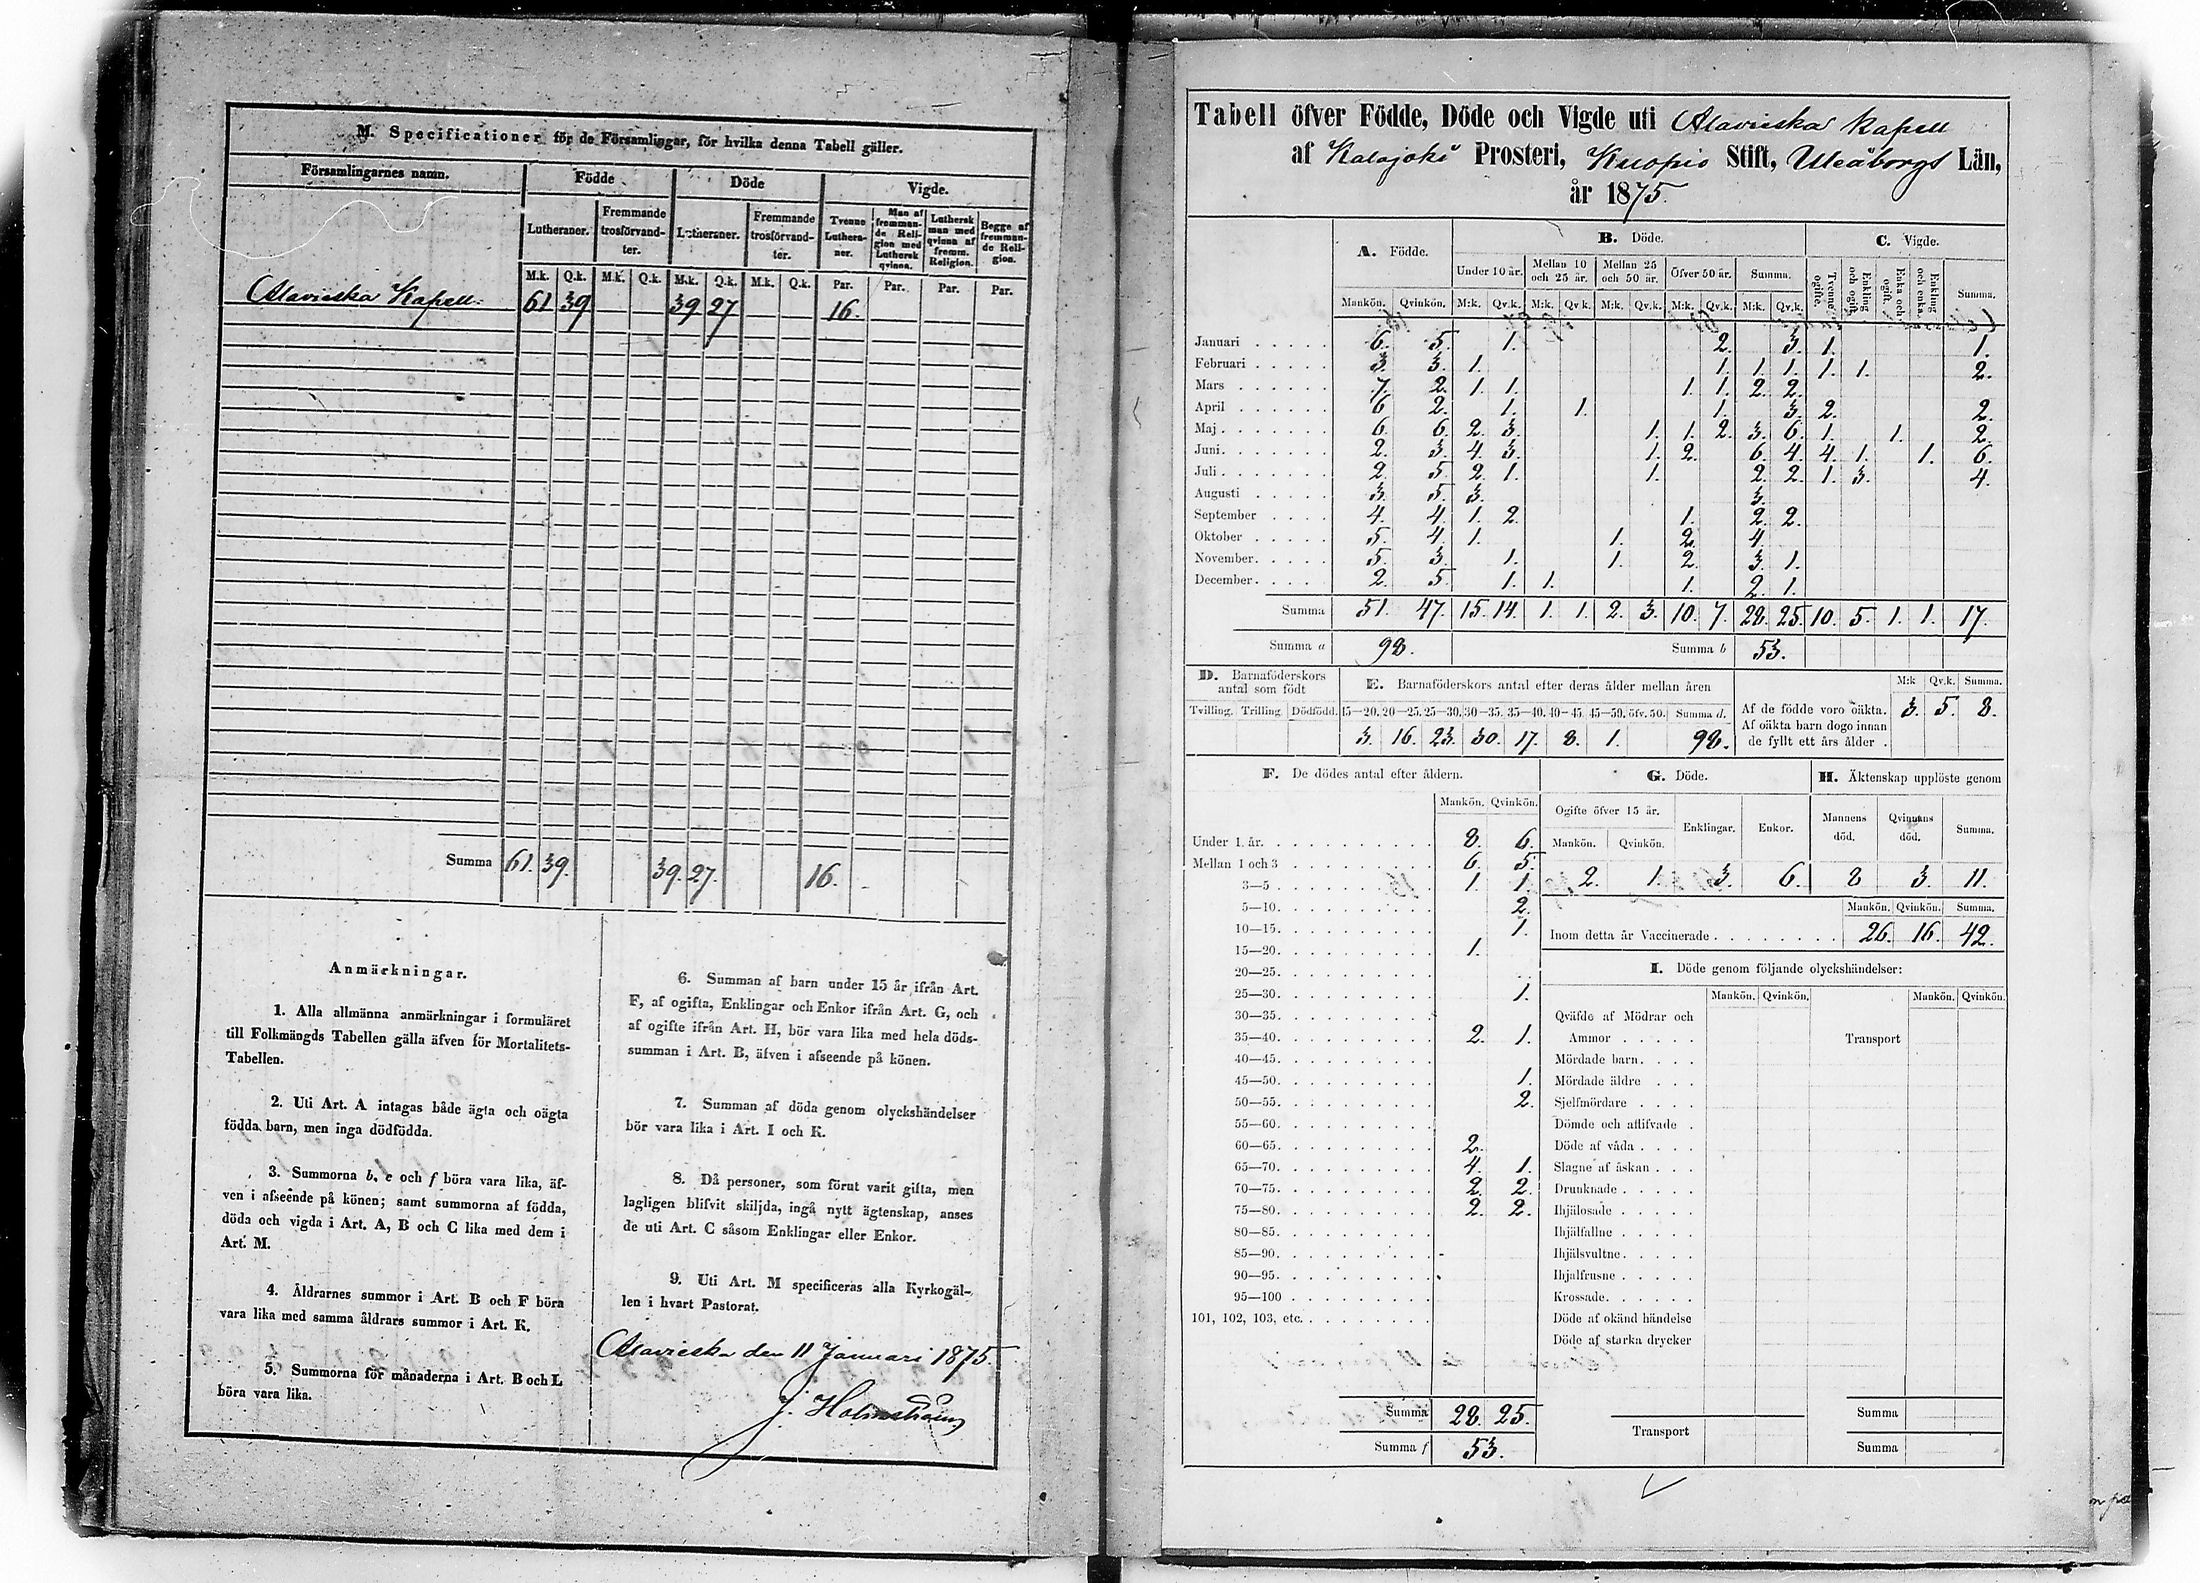 M. Specificationer för de Församlingar, för hvilka denna Tabell gäller.
Församlingarnes namn. Födde. Döde Vigde.
Lutheraner. Fremmande trosförvandter. Lutheraner. Fremmande trosförvandter. Tvenne Lutheraner. Man af fremmande Religion med Luthersk qvinna. Luthersk man med qvinna af fremm. Religion. Begge af fremmande Religion.
M.k. Q.k. M.k. Q.k. M.k. Q.k. M.k. Q.k. Par. Par. Par. Par.
Alavieska Kapell: 61 39 39 27 16.
Summa 61. 39. 39. 27. 16.
Anmärkningar.
1. Alla allmänna anmärkningar i formuläret
till Folkmängds Tabellen gälla äfven för Mortalitets-
Tabellen.
2. Uti Art. A intagas både ägta och oägta
födda barn, men inga dödfödda.
3. Summorna b, e och f böra vara lika, äf-
ven i afseende på könen; samt summorna af födda,
döda och vigda i Art. A, B och C lika med dem i
Art. M.
4. Åldrarnes summor i Art. B och F böra
vara lika med samma åldrars summor i Art. K.
5. Summorna för månaderna i Art. B och L
böra vara lika.
6. Summan af barn under 15 år ifrån Art.
F, af ogifta, Enklingar och Enkor ifrån Art. G, och
af ogifte ifrån Art. H, bör vara lika med hela döds-
summan i Art. B, äfven i afseende på könen.
7. Summan af döda genom olyckshändelser
bör vara lika i Art. I och K.
8. Då personer, som förut varit gifta, men
lagligen blifvit skiljda, ingå nytt ägtenskap, anses
de uti Art. C såsom Enklingar eller Enkor.
9. Uti Art. M specificeras alla Kyrkogäl-
len i hvart Pastorat.
Alavieska den 11 Januari 1875.
J. Holmström
Tabell öfver Födde, Döde och Vigde uti Alavieska Kapell
af Kalajoki Prosteri, Kuopio Stift, Uleåborgs Län,
år 1875.
A. Födde. B. Döde. C. Vigde.
Under 10 år. Mellan 10 och 25 år. Mellan 25 och 50 år. Öfver 50 år. Summa. Tvenne ogifte. Enkling och ogift. Enka och ogift. Enkling och enka. Summa.
Mankön. Qvinkön. M:k. Qv.k. M:k. Qv.k. M:k. Qv.k. M:k. Qv.k. M:k. Qv.k.
Januari 6. 5. 1. 2. 3. 1. 1.
Februari 3. 3. 1. 1. 1. 1. 1. 1. 2.
Mars 7. 2. 1. 1. 1. 1. 2. 2.
April 6 2. 1. 1. 1. 3. 2. 2.
Maj 6. 6. 2. 3. 1. 1. 2. 3. 6. 1. 1. 2.
Juni 2. 3. 4. 3. 1. 2. 6. 4. 4. 1. 1. 6.
Juli 2. 5. 2. 1. 1. 2. 2. 1. 3. 4.
Augusti 3. 5. 3. 3.
September 4. 4. 1. 2. 1. 2. 2.
Oktober 5. 4. 1. 1. 2. 4.
November 5. 3. 1. 1. 2. 3. 1.
December 2. 5. 1. 1. 1. 2. 1.
Summa 51. 47. 15. 14. 1. 1. 2. 3. 10. 7. 28. 25. 10. 5. 1. 1. 17.
Summa a 98. Summa b 53.
D. Barnaföderskors antal som födt
Tvilling. Trilling. Dödfödd.
E. Barnaföderskors antal efter deras ålder mellan åren
15—20. 20—25. 25—30. 30—35. 35—40. 40—45. 45—50. öfv. 50. Summa d.
3. 16. 23. 30. 17. 8. 1. 98.
M:k Qv.k. Summa.
Af de födde voro oäkta. 3. 5. 8.
Af oäkta barn dogo innan
de fyllt ett års ålder .
F. De dödes antal efter åldern.
Mankön. Qvinkön.
Under 1. år. 8. 6.
Mellan 1 och 3 6. 5.
3—5 1. 1.
5—10. 2.
10—15. 1.
15—20. 1.
20—25.
25—30. 1.
30—35.
35—40. 2. 1.
40—45.
45—50. 1.
50—55. 2.
55—60.
60—65. 2.
65—70. 4. 1.
70—75. 2. 2.
75—80. 2. 2.
80—85.
85—90.
90—95.
95—100
101, 102, 103, etc.
Summa 28. 25.
Summa f 53.
G. Döde.
Ogifte öfver 15 år. Enklingar. Enkor.
Mankön. Qvinkön.
2. 1. 3. 6.
H. Äktenskap upplöste genom
Mannens död. Qvinnans död. Summa.
8 3. 11.
Mankön. Qvinkön. Summa.
Inom detta år Vaccinerade 26. 16. 42.
I. Döde genom följande olyckshändelser:
Mankön. Qvinkön. Mankön. Qvinkön.
Qväfde af Mödrar och
Ammor Transport
Mördade barn
Mördade äldre
Sjelfmördare
Dömde och aflifvade
Döde af våda
Slagne af åskan
Drunknade
Ihjälosade
Ihjälfallne
Ihjälsvultne
Ihjälfrusne
Krossade
Döde af okänd händelse
Döde af starka drycker
Summa
Transport
Summa